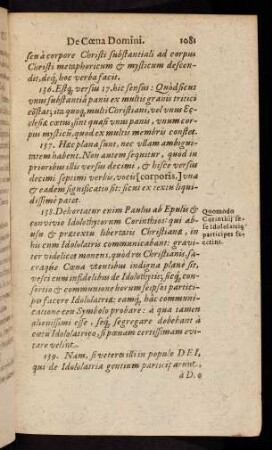 De Cœna Domini. 1081
seu à corpore Christi substantiali ad corpus
Christi metaphoricum & mysticum descen-
dit, deq́; hoc verba facit.
136. Estq́; versu 17. hic sensus: Quòd sicut
vnus substantiâ panis ex multis granis tritici
cōstat; ita quoq́; multi Christiani, vel vnus Ec-
clesiæ cœtus, sunt quasi vnus panis, vnum cor-
pus mysticū, quod ex multis membris constet.
137. Hæc plana sunt, nec vllam ambigui-
tatem habent. Non autem sequitur, quod in
prioribus duobus versus decimi, & hisce versus
decimi septimi verbis, vocis [corporis,] vna
& eadem significatio sit: sicut ex textu liqui-
dissimè patet.
138. Dehortatur enim Paulus ab Epulis &
convivio Idolothytorum Corinthios: qui ab-
usu & prætextu libertatis Christianæ, in
his cum Idololatris communicabant: gravi-
ter videlicet monens, quod ex Christianis, sa-
craq́ue Cœna vtentibus indigna planè sit,
vesci cum infidelibus de Idolothytis; sicq́; con-
sortio & communione horum seipsos partici-
pes facere Idololatriæ: eamq́; hâc communi-
catione ceu Symbolo probare: à qua tamen
alienissimi esse, seq́; segregare debebant à
cœtu Idololatrico, si pœnam certissimam evi-
tare velint.
Quomodo
Corinthij se-
se idololatriæ
participes fe-
cerint.
139. Nam, si veteres illi in populo DEI,
qui de Idololatria gentium participarunt,
à D. o